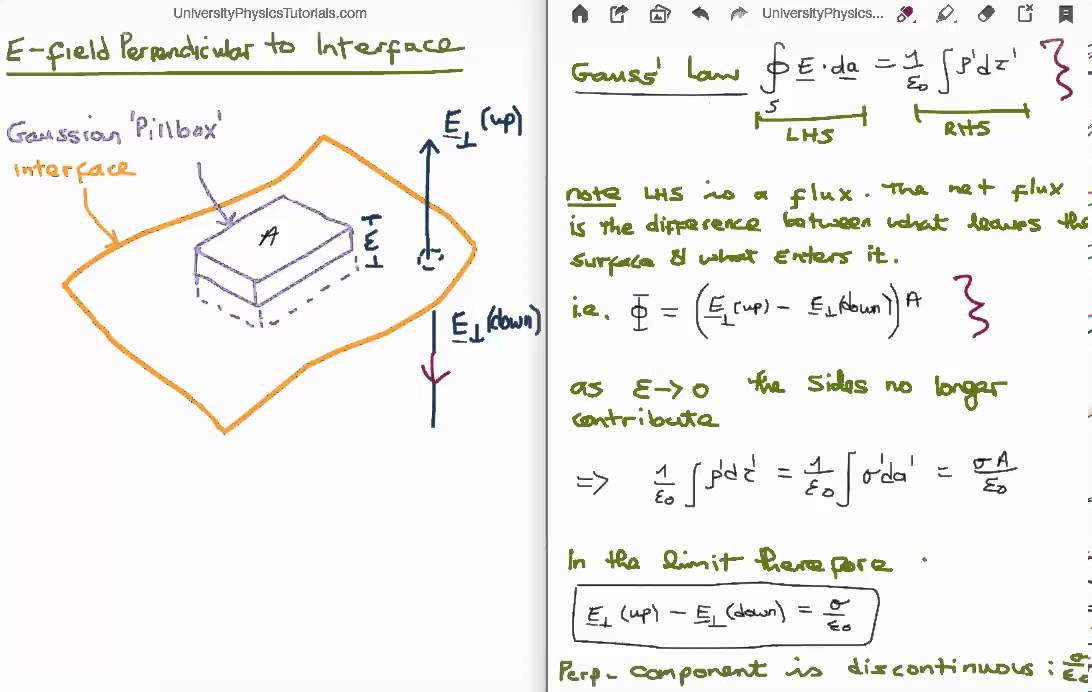 UniversityPhysicsTutorials.com
E-field Perpendicular to Interface
Gaussian 'Pillbox'
interface
A
ε
E⊥(up)
E⊥(down)
UniversityPhysics...
Gauss' Law ∮ E · da = 1/ε₀ ∫ρ'dτ'
S
LHS
RHS
note LHS is a flux. The net flux
is the difference between what leaves the
surface & what enters it.
i.e. Φ = (E⊥(up) - E⊥(down))A
as ε→0 the sides no longer
contribute
=> 1/ε₀ ∫ρ'dτ' = 1/ε₀ ∫σ'da' = σA/ε₀
In the limit therefore
E⊥(up) - E⊥(down) = σ/ε₀
Perp- component is discontinuous: σ/ε₀